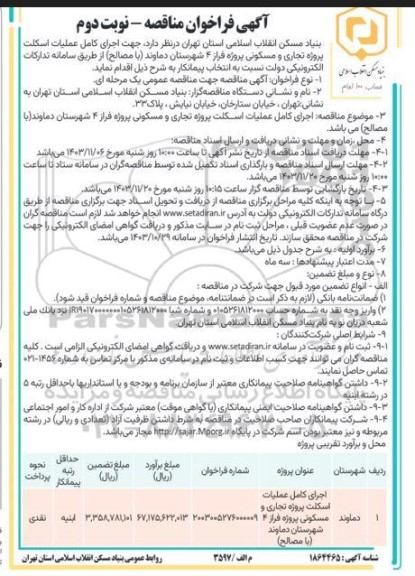 آگهی فراخوان مناقصه – نوبت دوم
بنیاد مسکن انقلاب اسلامی
حساب ۱۰۰ امام
بنیاد مسکن انقلاب اسلامی استان تهران درنظر دارد، جهت اجرای کامل عملیات اسکلت
پروژه تجاری و مسکونی پروژه فراز ۴ شهرستان دماوند (با مصالح) از طریق سامانه تدارکات
الکترونیکی دولت نسبت به انتخاب پیمانکار به شرح ذیل اقدام نماید.
۱- نوع فراخوان: آگهی مناقصه جهت مناقصه عمومی یک مرحله ای.
۲- نام و نشانی دستگاه مناقصه‌گزار: بنیاد مسکن انقلاب اسلامی استان تهران به
نشانی: تهران ، خیابان ستارخان، خیابان نیایش ، پلاک۳۳.
۳- موضوع مناقصه: اجرای کامل عملیات اسکلت پروژه تجاری و مسکونی پروژه فراز ۴ شهرستان دماوند(با
مصالح) می باشد.
۴- محل ،زمان و مهلت و نشانی دریافت و ارسال اسناد مناقصه:
۴-۱- مهلت دریافت اسناد مناقصه از تاریخ نشر آگهی تا ساعت ۱۰:۰۰ روز شنبه مورخ ۱۴۰۳/۱۱/۰۶ می‌باشد.
۴-۲- مهلت ارسال اسناد مناقصه و بارگذاری اسناد تکمیل شده توسط مناقصه‌گران در سامانه ستاد تا ساعت
۱۰:۰۰ روز شنبه مورخ ۱۴۰۳/۱۱/۲۰ می‌باشد.
۴-۳- تاریخ بازگشایی توسط مناقصه گزار ساعت ۱۰:۱۵ روز شنبه مورخ ۱۴۰۳/۱۱/۲۰ می‌باشد.
۵- با توجه به اینکه کلیه مراحل برگزاری مناقصه از دریافت و تحویل اسناد جهت برگزاری مناقصه از طریق
درگاه سامانه تدارکات الکترونیکی دولت به آدرس www.setadiran.ir انجام خواهد شد لازم است مناقصه گران
در صورت عدم عضویت قبلی ، مراحل ثبت نام در سایت مذکور و دریافت گواهی امضای الکترونیکی را جهت
شرکت در مناقصه محقق سازند. تاریخ انتشار فراخوان در سامانه ۱۴۰۳/۱۰/۲۹ می‌باشد.
۶- برآورد اولیه : به شرح جدول ذیل می‌باشد.
۷- مدت اعتبار پیشنهادها : سه ماه
۸- نوع و مبلغ تضمین:
الف - انواع تضمین مورد قبول جهت شرکت در مناقصه :
۱) ضمانت‌نامه بانکی (لازم به ذکر است در ضمانتنامه، موضوع مناقصه و شماره فراخوان قید شود).
۲) واریز وجه نقد به شماره حساب
شعبه دریان نو به نام بنیاد مسکن انقلاب اسلامی استان تهران.
۹- شرایط اصلی شرکت‌کنندگان :
۹-۱- ثبت نام و عضویت در سامانه www.setadiran.ir و دریافت گواهی امضای الکترونیکی الزامی است . کلیه
مناقصه گران می توانند جهت کسب اطلاعات و ثبت نام درسامانه‌ی مذکور با مرکز تماس به شماره ۱۴۵۶-۰۲۱
تماس حاصل نمایند.
۹-۲- داشتن گواهینامه صلاحیت پیمانکاری معتبر از سازمان برنامه و بودجه و یا استانداریها باحداقل رتبه ۵
در رشته ابنیه
۹-۳- داشتن گواهینامه صلاحیت ایمنی پیمانکاری (یا گواهی موقت) معتبر شرکت از اداره کار و امور اجتماعی
۹-۴- شرکت پیمانکاران صاحب صلاحیت در مناقصه به شرط داشتن ظرفیت آزاد (تعدادی و ریالی) در رشته
مربوطه و نیز معتبر بودن اسم شرکت در پایگاه http://sajar.Mporg.ir مجاز می‌باشد.
محل و برآورد تقریبی پروژه
ردیف شهرستان عنوان پروژه شماره فراخوان مبلغ برآورد (ریال) مبلغ تضمین (ریال) حداقل رتبه پیمانکار نحوه پرداخت
۱ دماوند اجرای کامل عملیات اسکلت پروژه تجاری و مسکونی پروژه فراز ۴ شهرستان دماوند (با مصالح) ۲۰۰۳۰۰۵۲۷۶۰۰۰۰۰۹ ۶۷,۱۷۵,۶۲۲,۰۱۳ ۳,۳۵۸,۷۸۱,۱۰۱ ابنیه نقدی
شناسه آگهی : ۱۸۶۴۴۶۵ م الف /۳۵۹۷ روابط عمومی بنیاد مسکن انقلاب اسلامی استان تهران